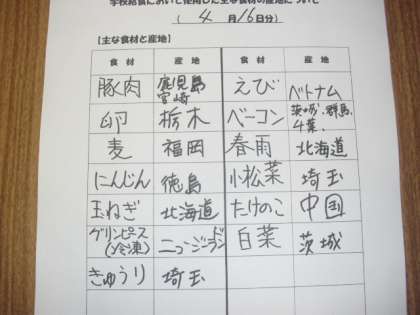 学校給食において使用した主な食材の産地について
( 4 月 16 日分)
【主な食材と産地】
食材 産地 食材 産地
豚肉 鹿児島 宮崎 えび ベトナム
卵 栃木 ベーコン 茨城、群馬、千葉、
麦 福岡 春雨 北海道
にんじん 徳島 小松菜 埼玉
玉ねぎ 北海道 たけのこ 中国
グリンピース(冷凍) ニュージーランド 白菜 茨城
きゅうり 埼玉